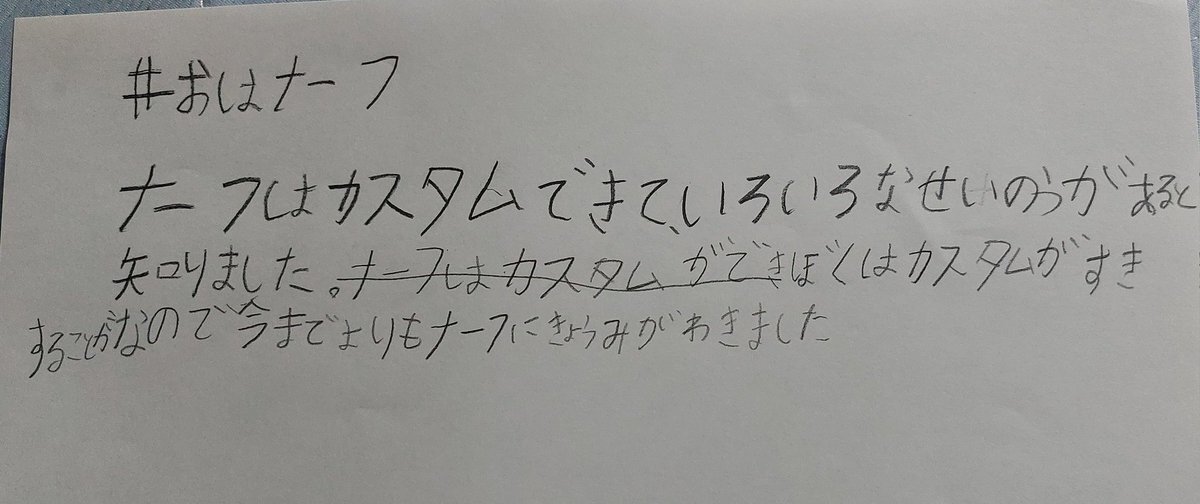 #おはナーフ
ナーフはカスタムできて、いろいろなせいのうがあると
知りました。ナーフはカスタムができぼくはカスタムがすき
することがなので今までよりもナーフにきょうみがわきました